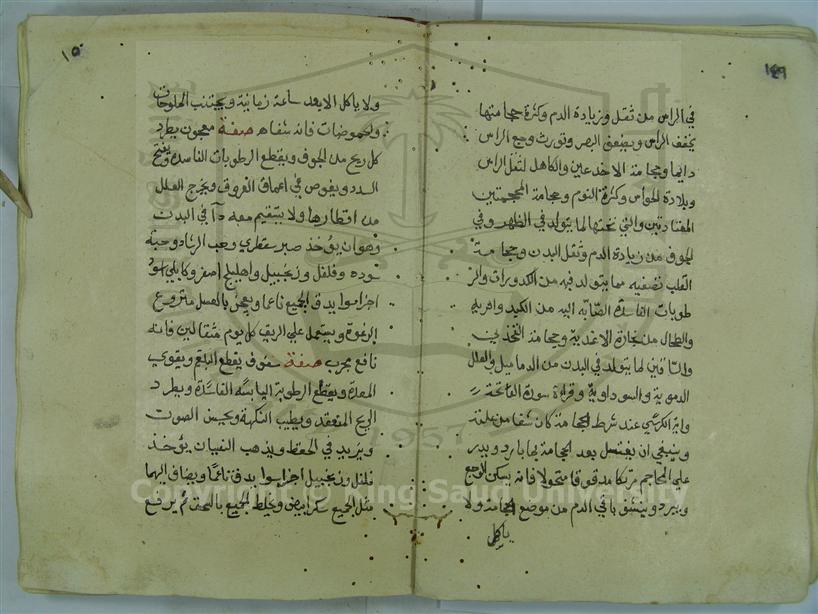 ١٤٩
في الراس من ثقل وزيادة الدم وكثرة حجامتها
يخفف الراس ويضعف البصر وتورث وجع الراس
دايما وحجامة الاخدعين والكاهل لثقل الراس
وبلادة الحواس وكثرة النوم وحجامة المحجمتين
المعتادتين والتي تحتها لما يتولد في الظهر وفي
الجوف من زيادة الدم وثقل البدن وحجامة
القلب تصفيه مما يتولد فيه من الكدورات والر
طوبات الفاسدة الصابه اليه من الكبد والريه
والطحال من بخارة الاغدية وحجامة الفخذين
والساقين لما يتولد في البدن من الدماميل والعلل
الدموية والسوداوية وقراءة سورة الفاتحة
واية الكرسي عند شرط الحجامة كان شفا من علته
وينبغي ان يغتسل بعد الحجامة بما بارد ويدر
على المحاجم مرتكا مدقوقا منخولا فانه يسكن الوجع
ويبرد وينشق باقي الدم من موضع الحجامة ولا
ياكل
١٥٠
ولا ياكل الا بعد ساعة زمانية ويجتنب الحلوحات
والحموضات فانه شفاه صفة معجون يطرد
كل ريح من الجوف ويقطع الرطوبات الفاسدة ويفتح
السدد ويغوص في اعماق العروق ويخرج العلل
من اقطارها ولا يستقيم معه دآ في البدن
وهو ان يؤخذ صبر سقطري وحب الرشاد وحبة
سوده وفلفل وزنجبيل واهليلج اصفر وكابلي اسود
اجزا سوا يدق الجميع ناعما ويعجن بالعسل منزوع
الرغوة ويستعمل على الريق كل يوم مثقالين فانه
نافع مجرب صفة سفوف يقطع البلغم ويقوي
المعدة ويقطع الرطوبة اليابسه الفاسدة ويطرد
الريح المنعقد ويطيب النكهة ويحسن الصوت
ويزيد في الحفظ ويذهب النسيان يؤخذ
فلفل وزنجبيل اجزا سوا يدق ناعما ويضاف اليهما
مثل الجميع سكر ابيض ويخلط الجميع بالسحق ثم يرفع
1957
Copyright © King Saud University